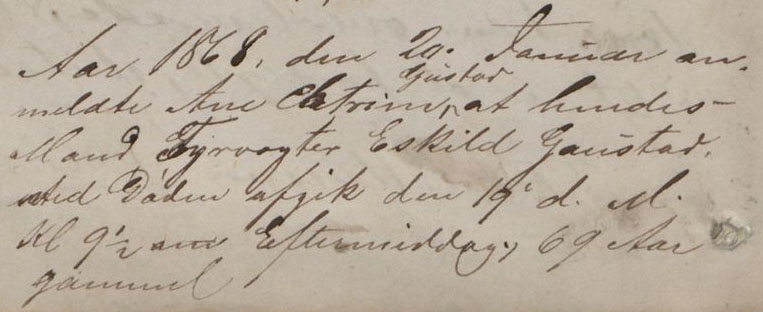 Aar 1868, den 20. Januar an-
Gustad
meldte Ane Catrine, at hendes
Mand Fyrvogter Eskild Gaustad,
ved Døden afgik den 19' d. M.
Kl 9½ om Eftermiddag, 69 Aar
gammel